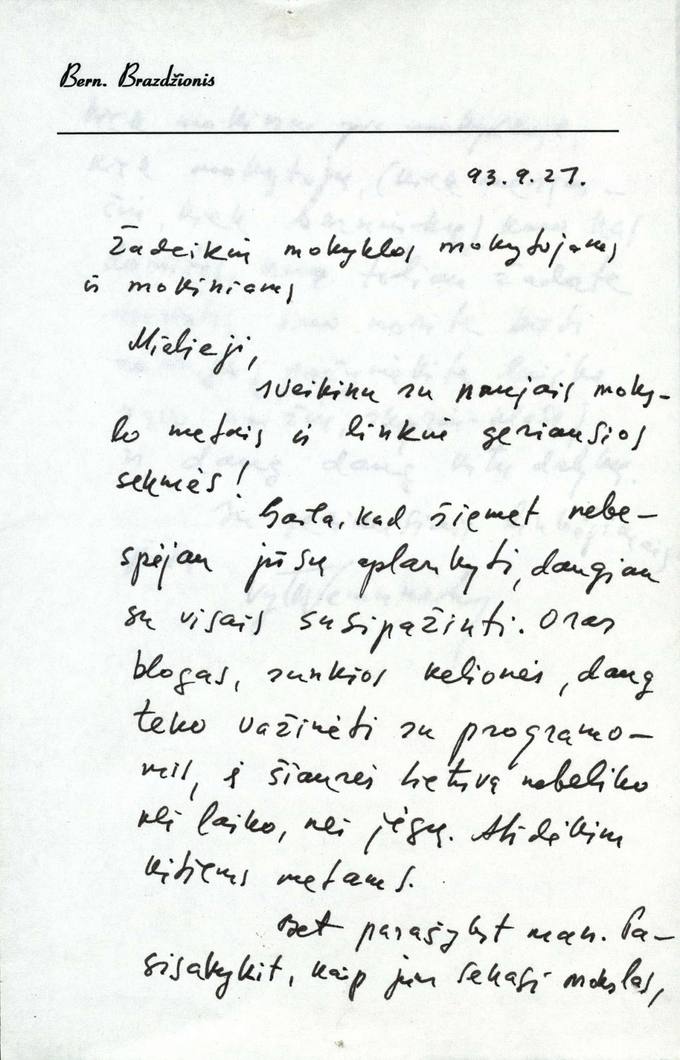 Bern. Brazdžionis
93.9.27.
Žadeikių mokyklos mokytojams
ir mokiniams
Mielieji,
sveikinu su naujais moks-
lo metais ir linkiu geriausios
sekmės!
Gaila, kad šiemet nebe-
spėjau jūsų aplankyti, daugiau
su visais susipažinti. Oras
blogas, sunkios kelionės, daug
teko važinėti su programo-
mis, į šiaurės Lietuvą nebeliko
nei laiko, nei jėgų. Atidėkim
kitiems metams.
Bet parašykit man. Pa-
sisakykit, kaip jum sekasi mokslas,